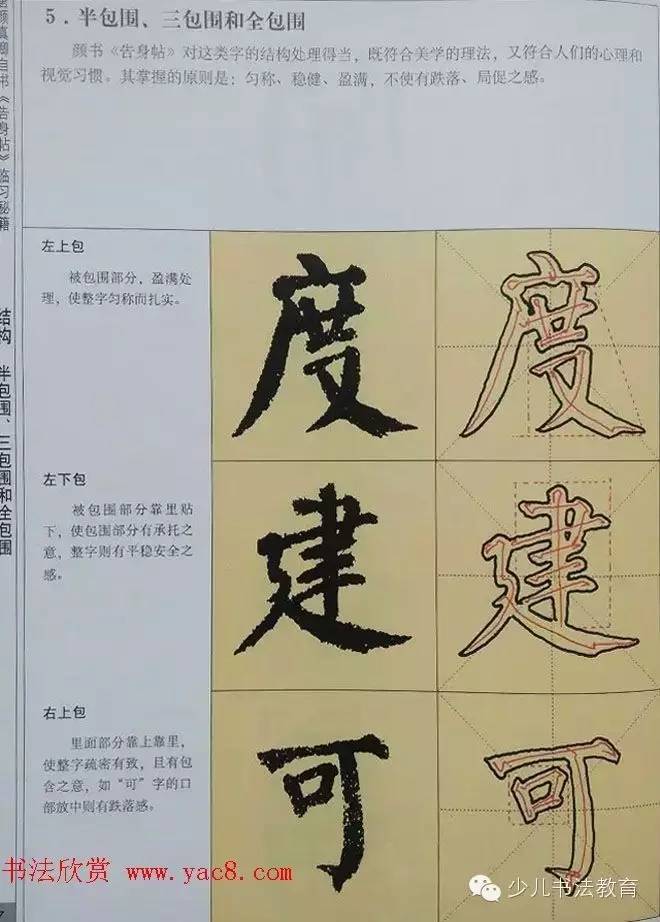 5．半包围、三包围和全包围
颜书《告身帖》对这类字的结构处理得当，既符合美学的理法，又符合人们的心理和
视觉习惯。其掌握的原则是：匀称、稳健、盈满，不使有跌落、局促之感。
颜真卿自书《告身帖》临习秘籍
结构 半包围、三包围和全包围
左上包
被包围部分，盈满处
理，使整字匀称而扎实。
度
度
左下包
被包围部分靠里贴
下，使包围部分有承托之
意，整字则有平稳安全之
感。
建
建
右上包
里面部分靠上靠里，
使整字疏密有致，且有包
含之意，如“可”字的口
部放中则有跌落感。
可
可
书法欣赏 www.yac8.com
少儿书法教育
7